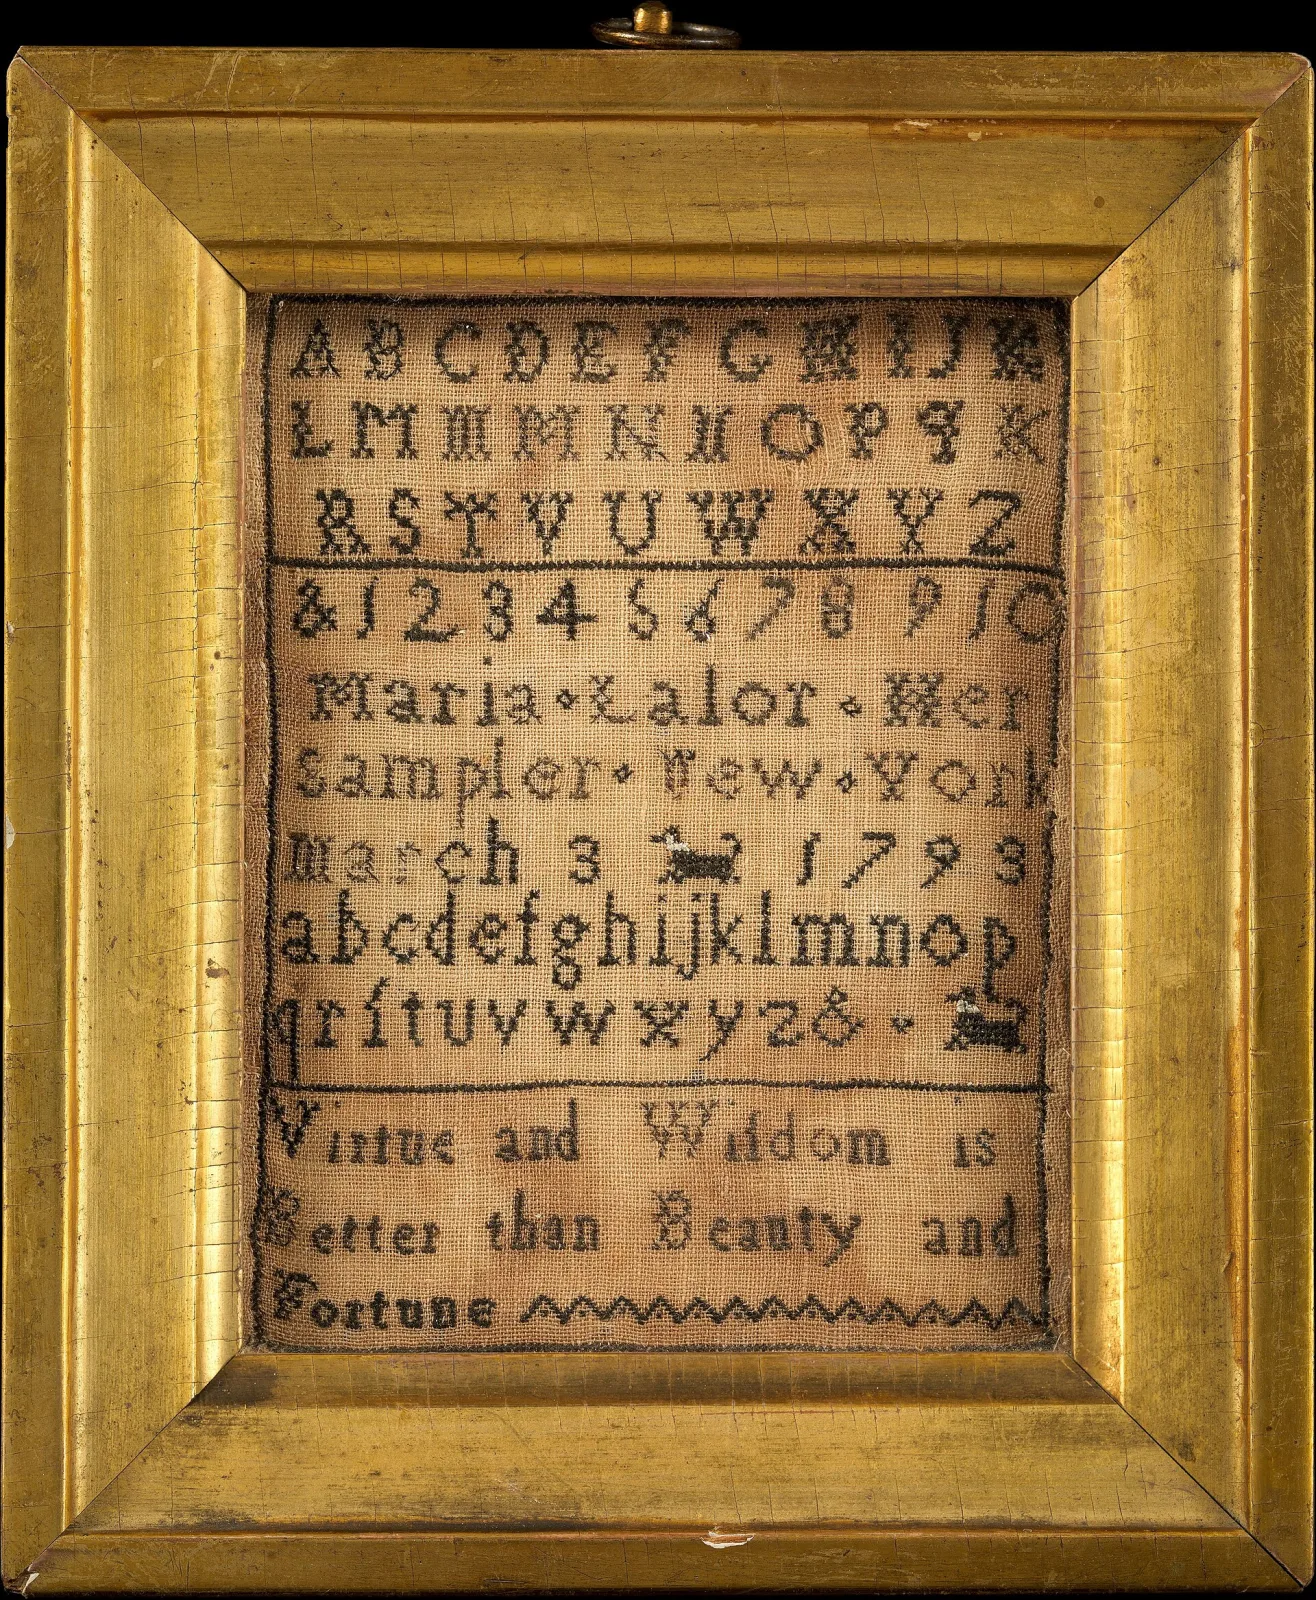 A B C D E F G H I J K
L M M M N N O P Q K
R S T V U W X Y Z
& 1 2 3 4 5 6 7 8 9 10
Maria · Lalor · Her
sampler · New · York
March 3 1793
abcdefghijklmnop
qrſtuvwxyz& ·
Virtue and Wiſdom is
Better than Beauty and
Fortune